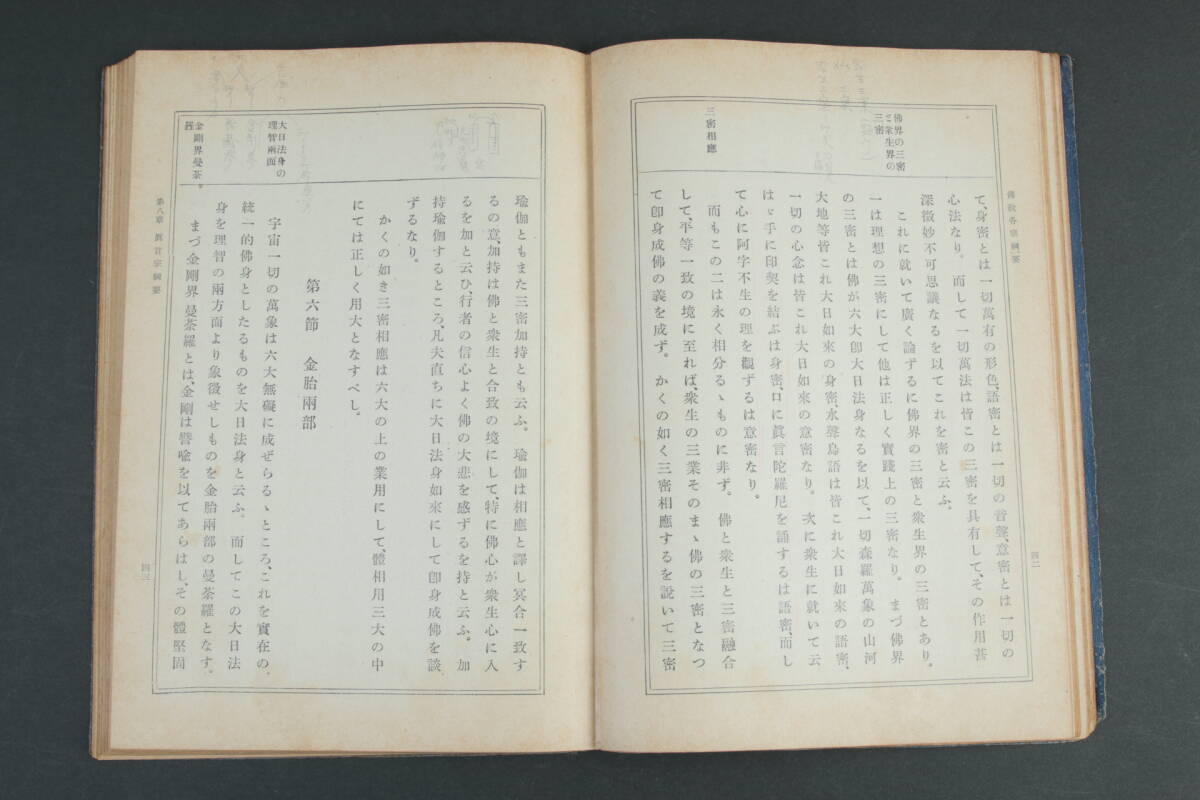 佛教各宗綱要
四二
佛界の三密
と衆生界の
三密
三密相應
て、身密とは一切萬有の形色、語密とは一切の音聲、意密とは一切の
心法なり。而して一切萬法は皆この三密を具有して、その作用甚
深微妙不可思議なるを以てこれを密と云ふ、
これに就いて廣く論ずるに佛界の三密と衆生界の三密とあり。
一は理想の三密にして他は正しく實踐上の三密なり。まづ佛界
の三密とは佛が六大卽大日法身なるを以て、一切森羅萬象の山河
大地等皆これ大日如來の身密、水聲鳥語は皆これ大日如來の語密、
一切の心念は皆これ大日如來の意密なり。次に衆生に就いて云
はゞ手に印契を結ぶは身密、口に眞言陀羅尼を誦するは語密、而し
て心に阿字不生の理を觀ずるは意密なり。
而もこの二は永く相分るゝものに非ず。佛と衆生と三密融合
して、平等一致の境に至れば、衆生の三業そのまゝ佛の三密となつ
て卽身成佛の義を成ず。かくの如く三密相應するを説いて三密
第八章 眞言宗綱要
四三
大日法身の
理智兩面
金剛界曼荼
羅
瑜伽ともまた三密加持とも云ふ。瑜伽は相應と譯し冥合一致す
るの意、加持は佛と衆生と合致の境にして、特に佛心が衆生心に入
るを加と云ひ、行者の信心よく佛の大悲を感ずるを持と云ふ。加
持瑜伽するところ、凡夫直ちに大日法身如來にして卽身成佛を談
ずるなり。
かくの如き三密相應は六大の上の業用にして、體相用三大の中
にては正しく用大となすべし。
第六節 金胎兩部
宇宙一切の萬象は六大無礙に成ぜらるゝところ、これを實在の、
統一的佛身としたるものを大日法身と云ふ。而してこの大日法
身を理智の兩方面より象徵せしものを金胎兩部の曼荼羅となす。
まづ金剛界曼荼羅とは、金剛は譬喩を以てあらはし、その體堅固